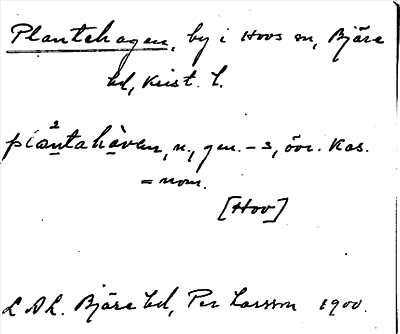 Plantehagen, by i Hovs sn, Bjäre
hd, Krist. l.
plantahàven, n., gen. -s, övr. kas.
= nom.
[Hov]
LAL. Bjäre hd, Per Larsson 1900.